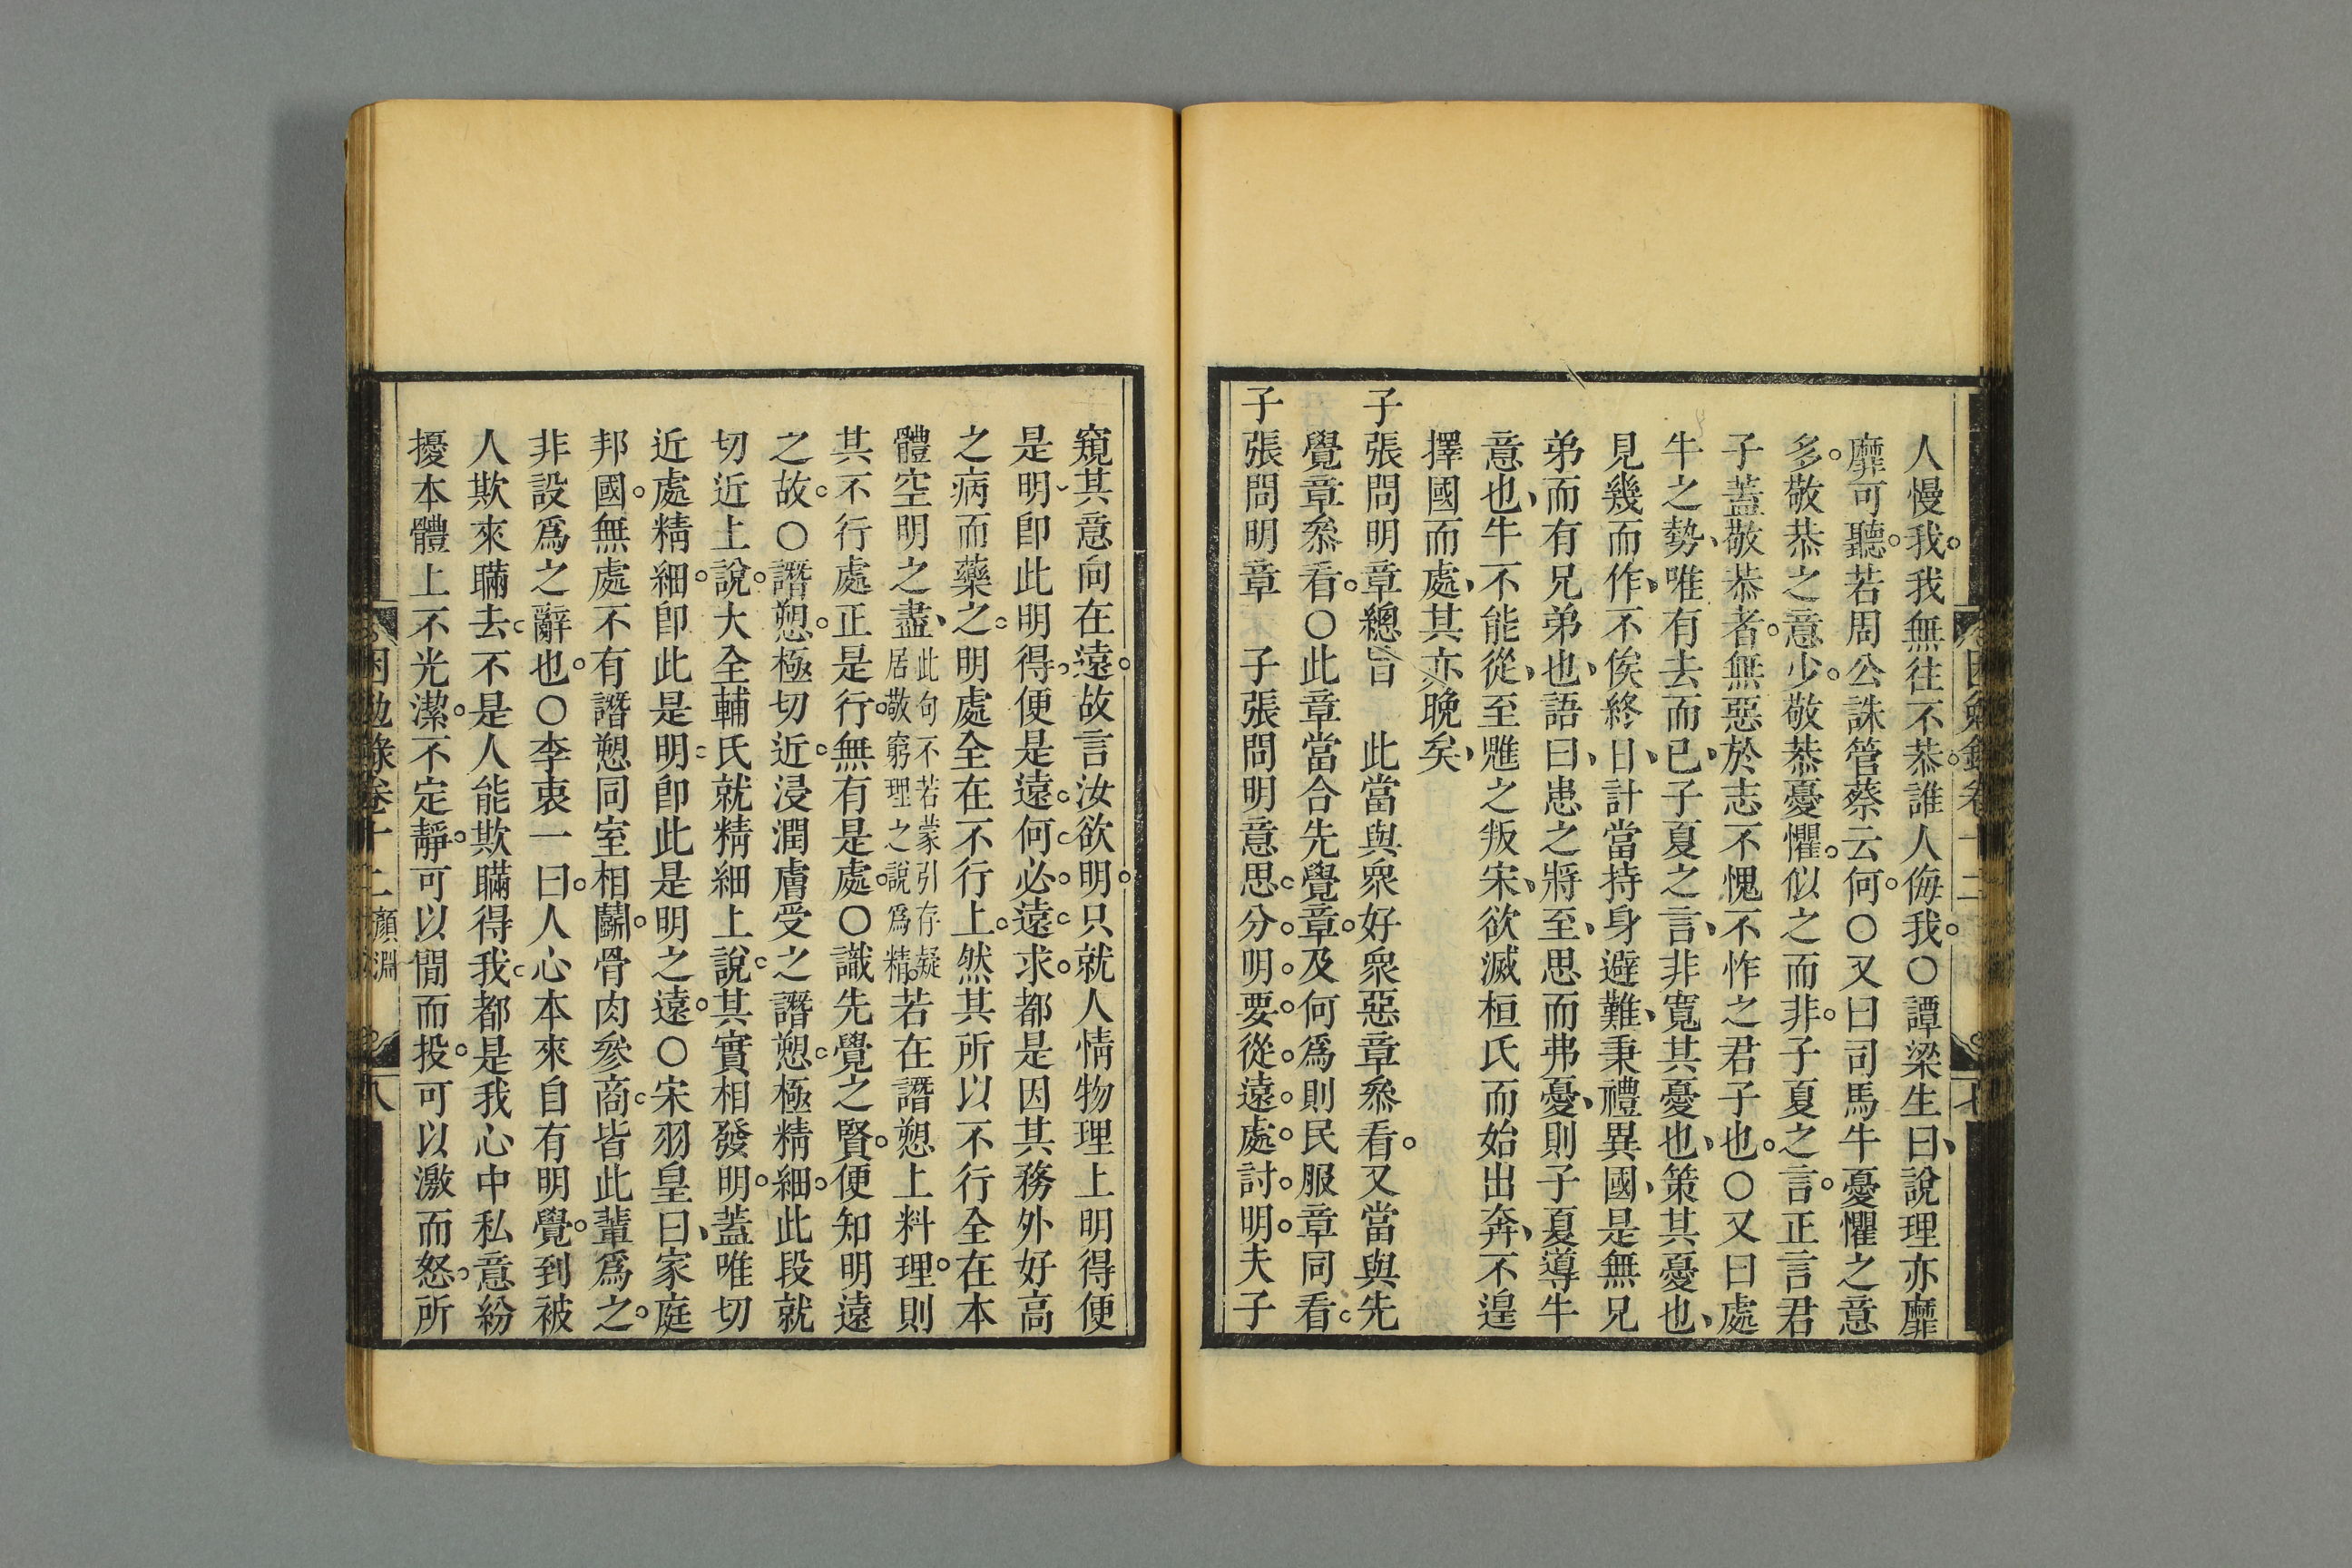 人慢我我無往不恭誰人侮我○譚梁生曰說理亦靡
靡可聽若周公誅管蔡云何○又曰司馬牛憂懼之意
多敬恭之意少敬恭憂懼似之而非子夏之言正言君
子蓋敬恭者無惡於志不愧不怍之君子也○又曰處
牛之勢唯有去而已子夏之言非寬其憂也策其憂也
見幾而作不俟終日計當持身避難秉禮異國是無兄
弟而有兄弟也語曰患之將至思而弗憂則子夏導牛
意也牛不能從至魋之叛宋欲滅桓氏而始出奔不遑
擇國而處其亦晚矣
子張問明章總旨　此當與衆好衆惡章叅看又當與先
覺章叅看○此章當合先覺章及何爲則民服章同看
子張問明章　子張問明意思分明要從遠處討明夫子
窺其意向在遠故言汝欲明只就人情物理上明得便
是明卽此明得便是遠何必遠求都是因其務外好高
之病而藥之明處全在不行上然其所以不行全在本
體空明之盡此句不若蒙引存疑居敬窮理之說爲精若在譖愬上料理則
其不行處正是行無有是處○識先覺之賢便知明遠
之故○譖愬極切近浸潤膚受之譖愬極精細此段就
切近上說大全輔氏就精細上說其實相發明蓋唯切
近處精細卽此是明卽此是明之遠○宋羽皇曰家庭
邦國無處不有譖愬同室相鬭骨肉參商皆此輩爲之
非設爲之辭也○李衷一曰人心本來自有明覺到被
人欺來瞞去不是人能欺瞞得我都是我心中私意紛
擾本體上不光潔不定靜可以間而投可以激而怒所
困勉錄卷十二　顏淵　八